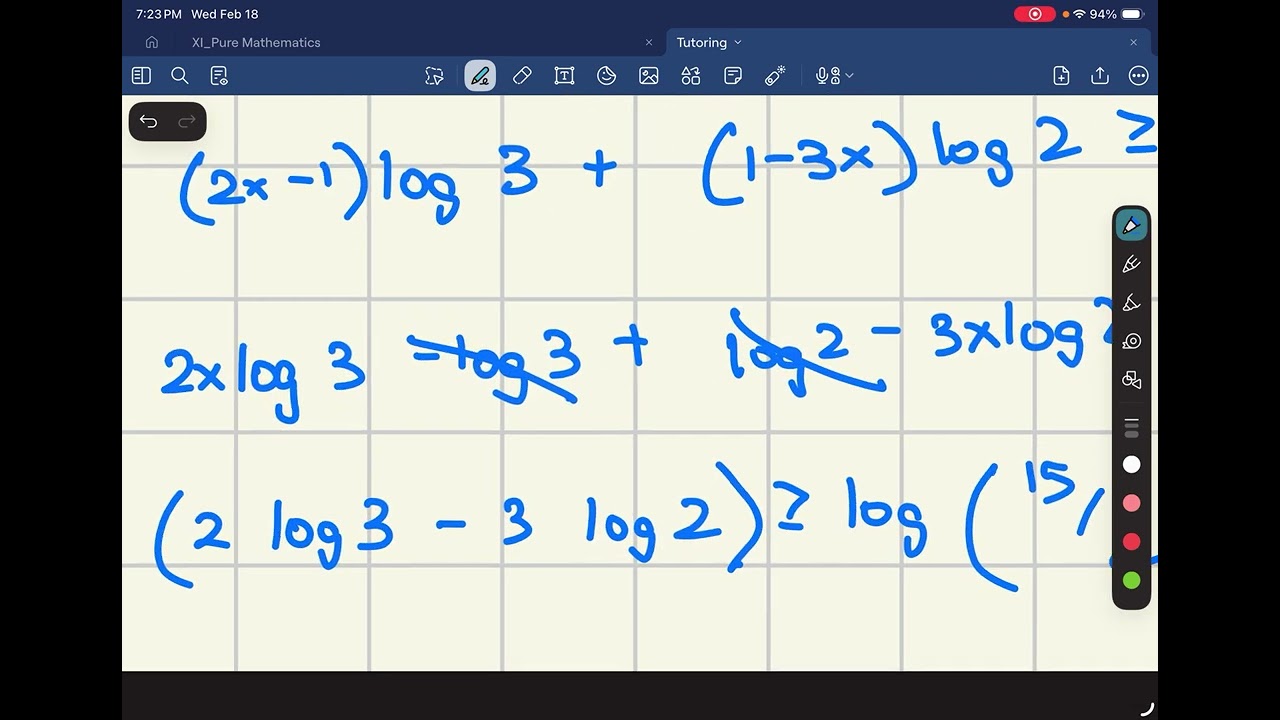 7:23 PM Wed Feb 18 94%
XI_Pure Mathematics × Tutoring ×
(2x -1) log 3 + (1-3x) log 2 ≥
2x log 3 - log 3 + log 2 - 3x log 2
(2 log 3 - 3 log 2) ≥ log (15/